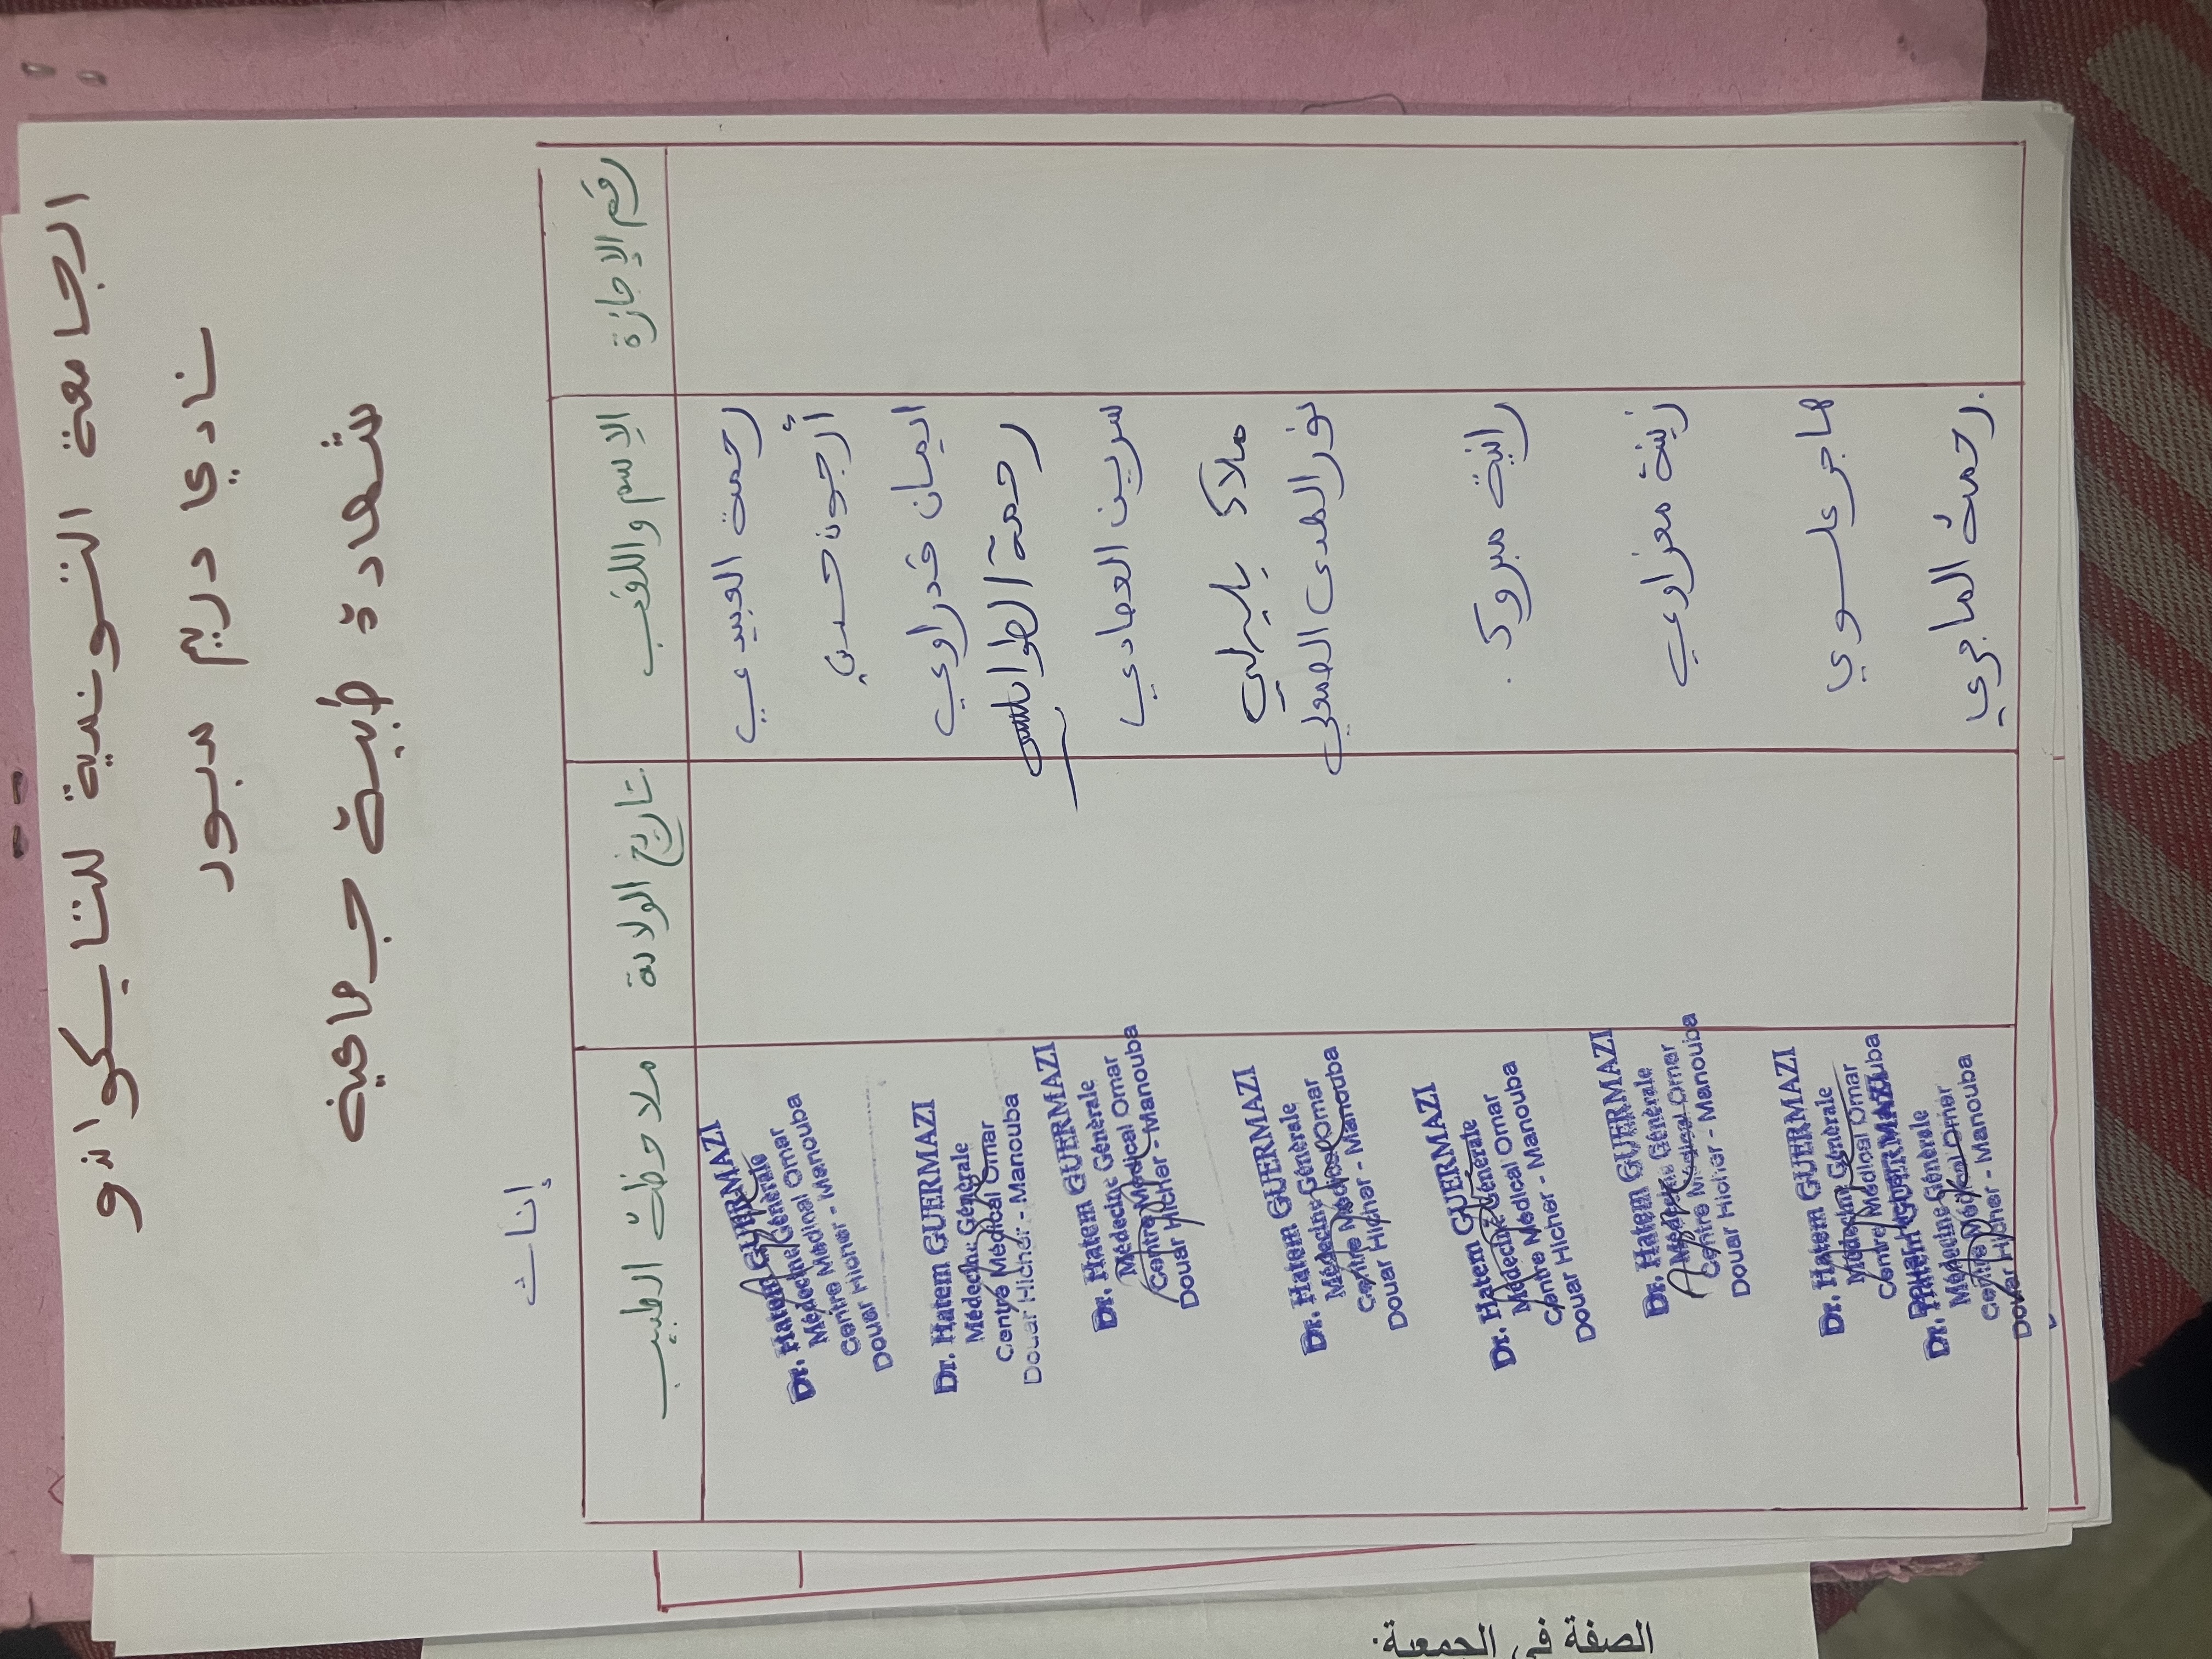 الجامعة التونسية للتايكواندو
نادي دريم سبور
شهادة طبية جماعية
إناث
رقم الإجازة
الإسم واللقب
تاريخ الولادة
ملاحظات الطبيب
رحمة العبيدي
أرجوان حسني
ايمان قدراوي
رحمة الطرابلسي
سيرين العمادي
ملاك
نور الهدى
رانية مبروك
زينة مغراوي
هاجر علوي
رحمة الماجري
Dr. Hatem GUERMAZI
Médecine Générale
Centre Médical Omar
Douar Hicher - Manouba
Dr. Hatem GUERMAZI
Médecine Générale
Centre Médical Omar
Douar Hicher - Manouba
Dr. Hatem GUERMAZI
Médecine Générale
Centre Médical Omar
Douar Hicher - Manouba
Dr. Hatem GUERMAZI
Médecine Générale
Centre Médical Omar
Douar Hicher - Manouba
Dr. Hatem GUERMAZI
Médecine Générale
Centre Médical Omar
Douar Hicher - Manouba
Dr. Hatem GUERMAZI
Médecine Générale
Centre Médical Omar
Douar Hicher - Manouba
Dr. Hatem GUERMAZI
Médecine Générale
Centre Médical Omar
Dr. Hatem GUERMAZI
Médecine Générale
Centre Médical Omar
Douar Hicher - Manouba
الصفة في الجمعية: